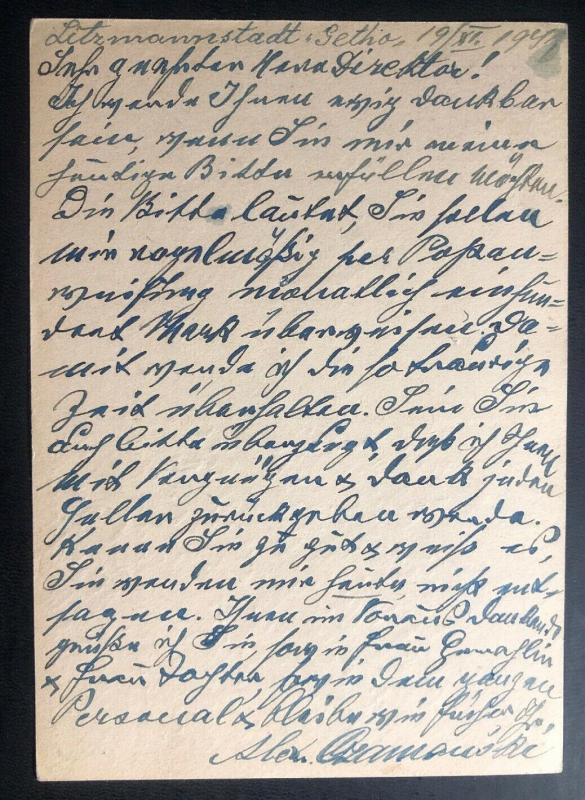 Litzmannstadt-Getho, 19/XI. 194
Sehr geehrter Herr Direktor!
Ich werde Ihnen ewig dankbar
sein, wenn Sie mir meine
heutige Bitte erfüllen möchten.
Die Bitte lautet, Sie sollen
mir regelmäßig per Postan-
weisung monatlich einhun-
dert Mark überweisen. Da-
mit werde ich die so traurige
Zeit überhalten. Sein Sie
auch bitte überzeugt, daß ich Ihnen
mit Vergnügen & Dank jeden
Heller zurückgeben werde.
Kenne Sie zu gut & weiß es,
Sie werden mir heute nicht ent-
sagen. Ihnen im Voraus dankend
grüße ich Sie, sowie Frau Gemahlin
& Frau Tochter, sowie dem ganzen
Personal & bleibe wie früher Ihr
Alex.